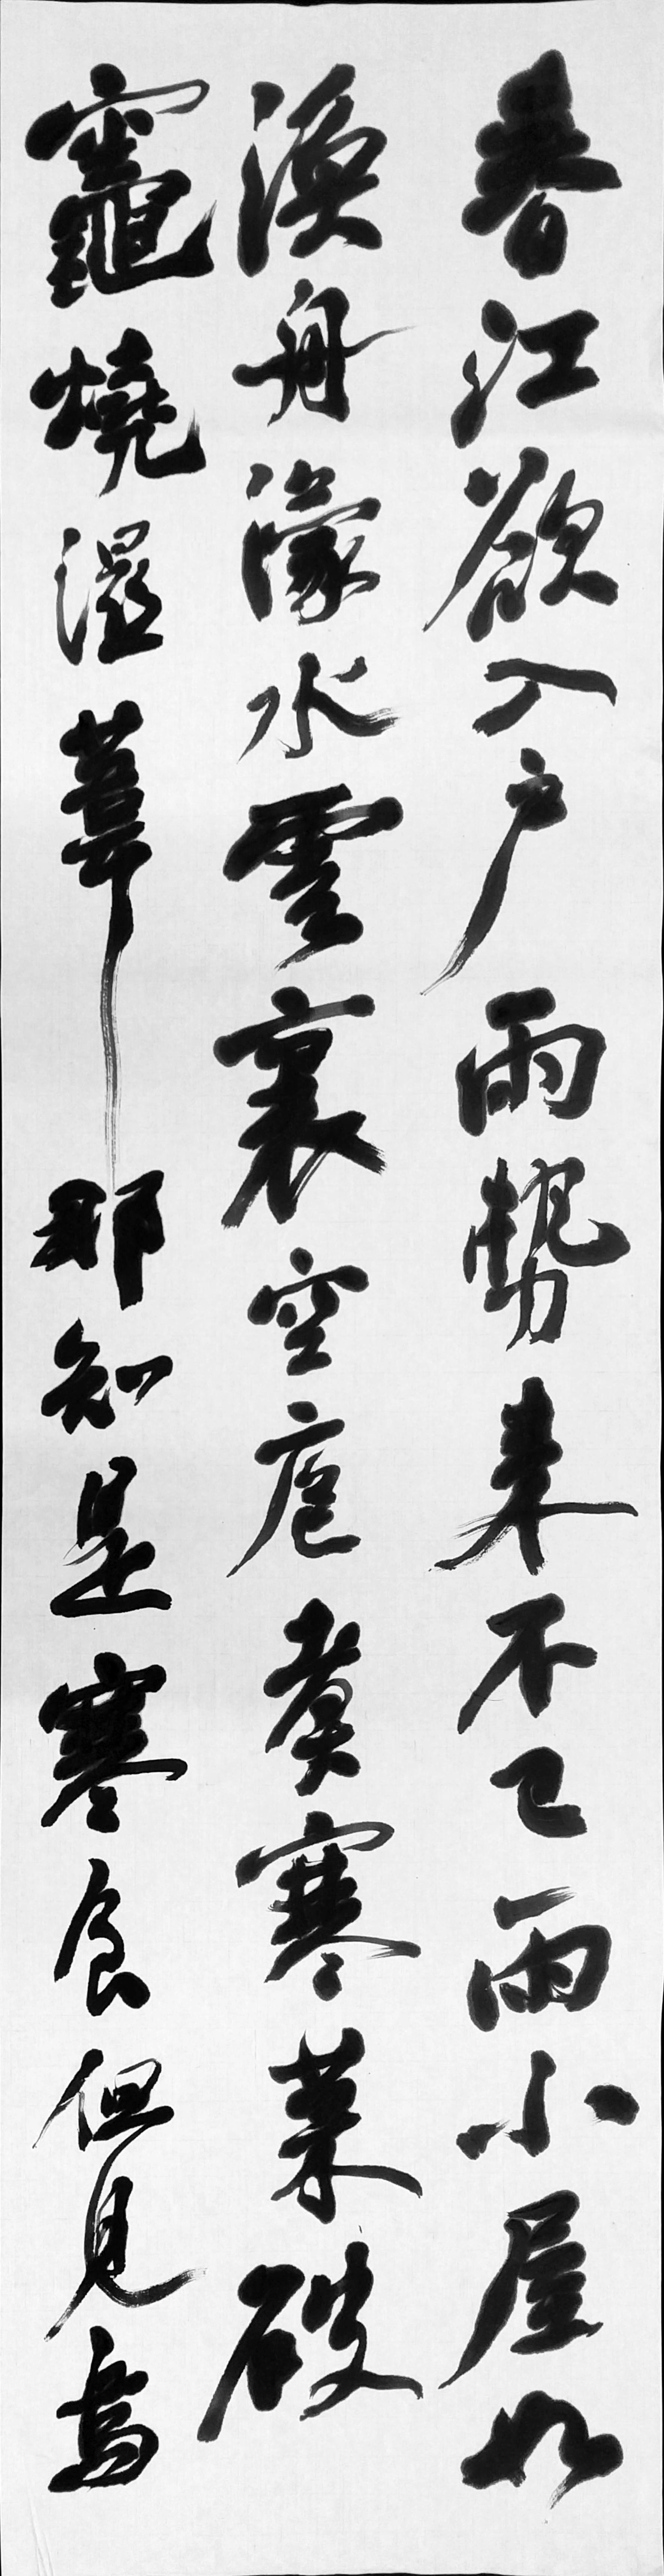 春江欲入户雨勢来不已雨小屋如
漁舟濛水雲裏空庖煑寒菜破
竈燒溼葦那知是寒食但見烏